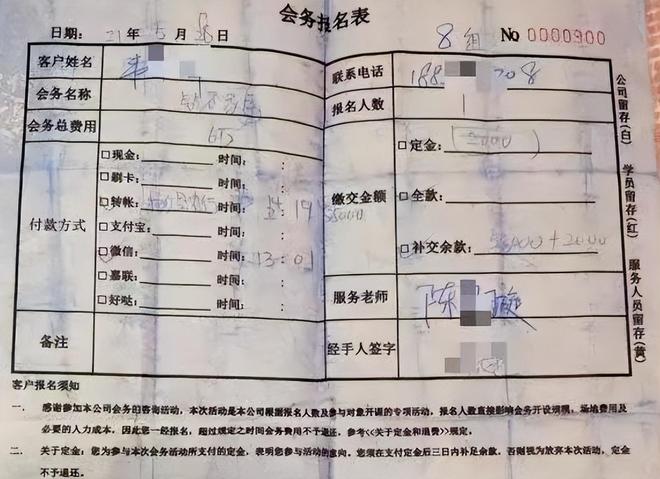 会务报名表
日期: 21年 5月 日
8组 No 0000900
客户姓名
联系电话 188 708
会务名称
报名人数 1
会务总费用 6万
付款方式
□现金: 时间: :
□刷卡: 时间: :
□转帐: 时间: 14: 19 58000
□支付宝: 时间: :
□微信: 时间: 13:01
□嘉联: 时间: :
□好哒: 时间: :
缴交金额
□定金: 2000
□全款:
□补交余款: 58000+2000
服务老师 陈
备注
经手人签字
公司留存(白) 学员留存(红) 服务人员留存(黄)
客户报名须知
一. 感谢参加本公司会务的咨询活动，本次活动是本公司根据报名人数及参与对象开课的专项活动，报名人数直接影响会务开设规模，场地费用及
必要的人力成本。因此您一经报名，超过规定之时间会务费用不予退还，参考<<关于定金和退费>>规定。
二. 关于定金: 您为参与本次会务活动所支付的定金，表明您参与活动的意向。您须在支付定金后三日内补足余款，否则视为放弃本次活动，定金
不予退还。